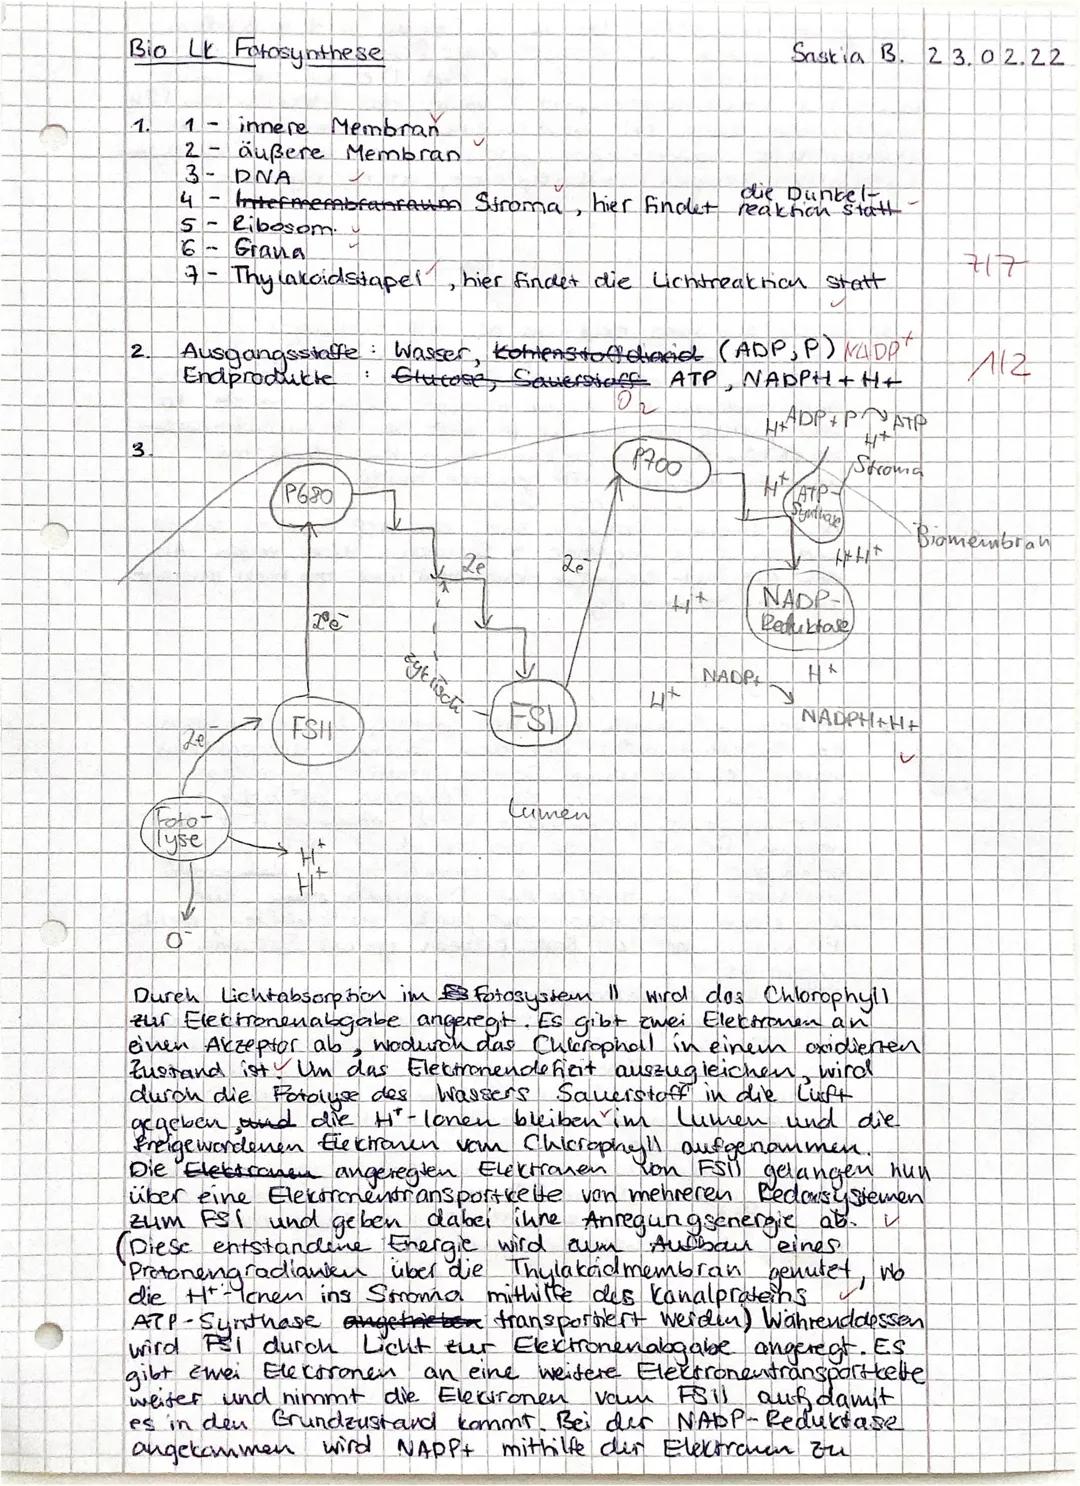 Bio Lk Fotosynthese
Saskia B. 23.02.22
1. 1 - innere Membran
2 - äußere Membran
3 - DNA
4 - Intermembranraum Stroma, hier findet die Dunkel-
reaktion statt
5 - Ribosom
6 - Grana
7 - Thylakoidstapel, hier findet die Lichtreaktion statt
7/7
2. Ausgangsstoffe : Wasser, Kohlenstoffdioxid (ADP, P) NADP+
Endprodukte : Glucose, Sauerstoff ATP, NADPH + H+
O2
1/2
3.
H+ ADP + P ATP
H+
Stroma
P680
P700
H+
ATP-
Synthase
Biomembran
H+ H+
2e-
2e-
H+
NADP-
Reduktase
2e-
zyklisch
NADP+
H+
H+
NADPH+H+
FSII
FSI
2e-
Lumen
Foto-
lyse
H+
H+
O-
Durch Lichtabsorption im Fotosystem II wird das Chlorophyll
zur Elektronenabgabe angeregt. Es gibt zwei Elektronen an
einen Akzeptor ab, wodurch das Chlorophyll in einem oxidierten
Zustand ist. Um das Elektronendefizit auszugleichen, wird
durch die Fotolyse des Wassers Sauerstoff in die Luft
gegeben, und die H+-Ionen bleiben im Lumen und die
freigewordenen Elektronen vom Chlorophyll aufgenommen.
Die Elektronen angeregten Elektronen von FSII gelangen nun
über eine Elektronentransportkette von mehreren Redoxsystemen
zum FSI und geben dabei ihre Anregungsenergie ab.
(Diese entstandene Energie wird zum Aufbau eines
Protonengradianten über die Thylakoidmembran genutzt, wo
die H+-Ionen ins Stroma mithilfe des Kanalproteins
ATP-Synthase angetrieben transportiert werden) Währenddessen
wird FSI durch Licht zur Elektronenabgabe angeregt. Es
gibt zwei Elektronen an eine weitere Elektronentransportkette
weiter und nimmt die Elektronen vom FSII auf, damit
es in den Grundzustand kommt. Bei der NADP-Reduktase
angekommen wird NADP+ mithilfe der Elektronen zu